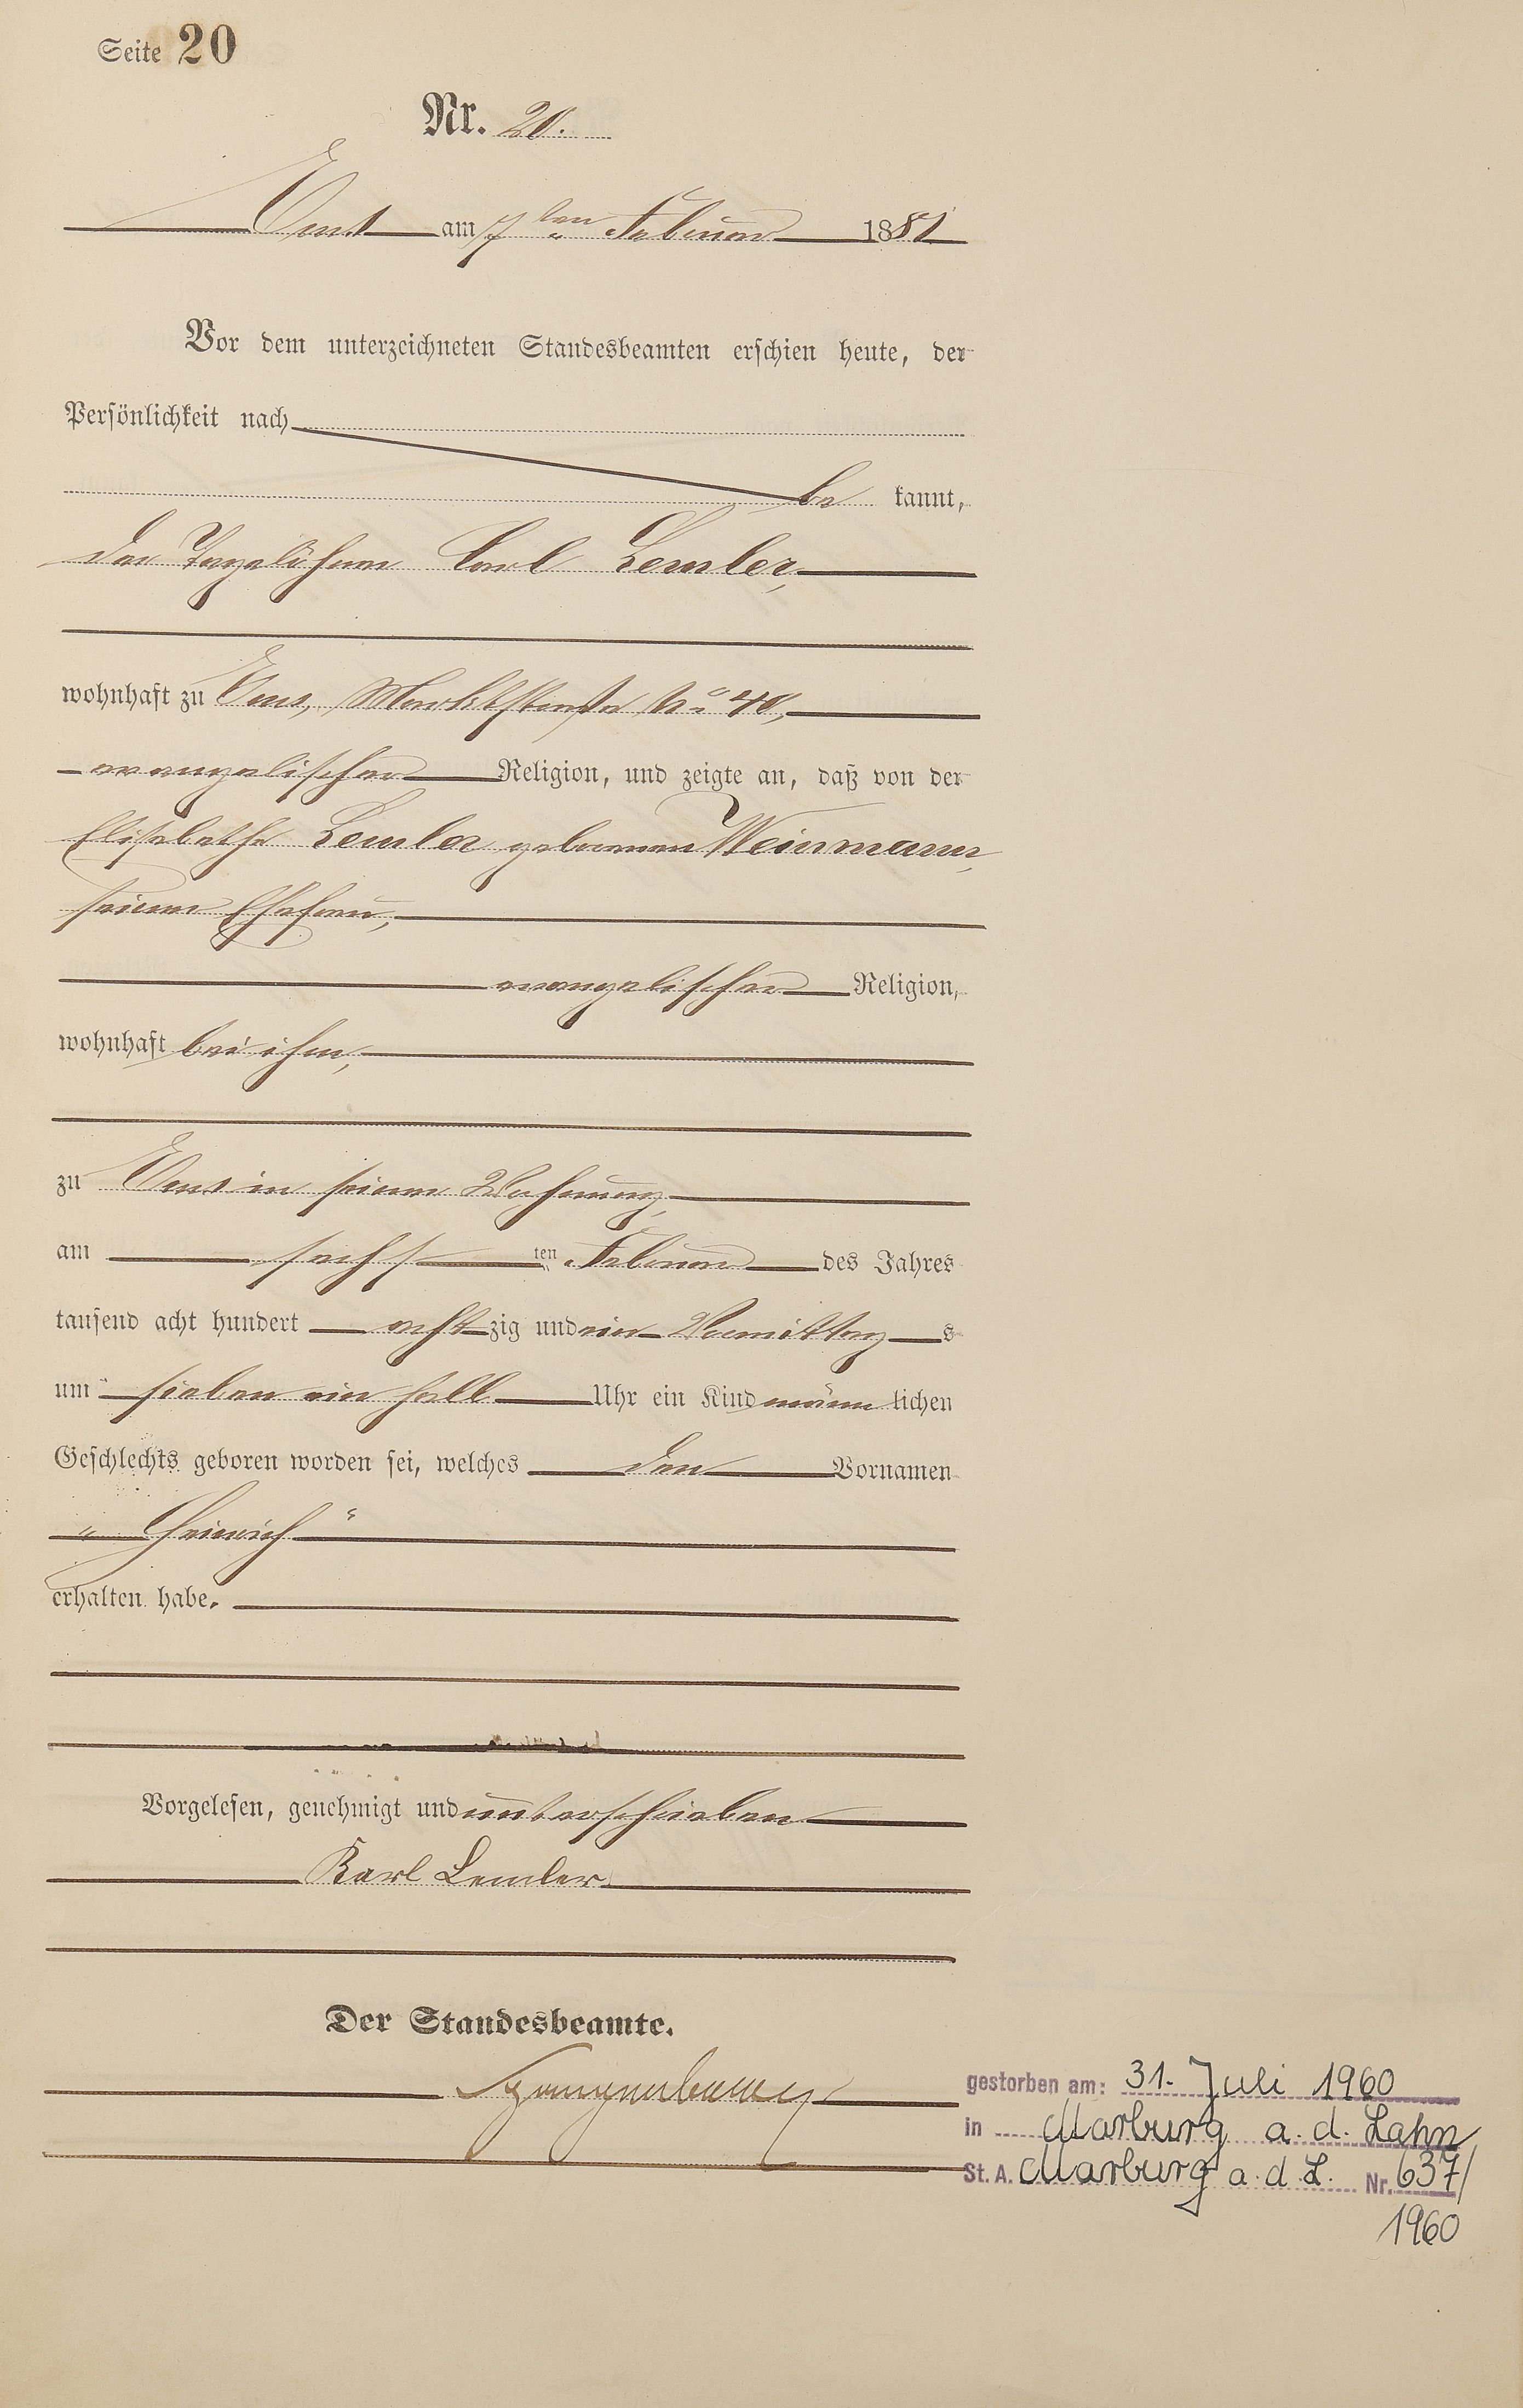 Seite 20
Nr. 20.
Ems am 7ten Februar 1881
Vor dem unterzeichneten Standesbeamten erschien heute, der
Persönlichkeit nach
be kannt,
der Tagelöhner Carl Lemler,
wohnhaft zu Ems, Marktstraße No 40,
evangelischer Religion, und zeigte an, daß von der
Elisabetha Lemler geborenen Weinmann,
seiner Ehefrau,
evangelischer Religion,
wohnhaft bei ihm,
zu Ems in seiner Wohnung,
am sechs ten Februar des Jahres
tausend acht hundert acht zig und ein Vormittag s
um sieben ein halb Uhr ein Kind männ lichen
Geschlechts geboren worden sei, welches den Vornamen
„Heinrich“
erhalten habe.
Vorgelesen, genehmigt und unterschrieben
Karl Lemler
Der Standesbeamte.
gestorben am: 31. Juli 1960
in Marburg a. d. Lahn
St. A. Marburg a. d. L. Nr. 637/
1960